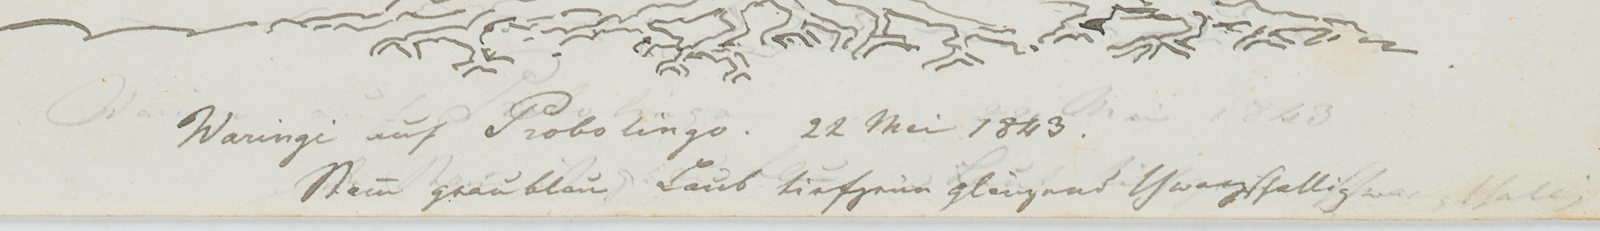 Waringi auf Probolingo. 22 Mai 1843.
Stam̄ graublau Laub tiefgrün glänzend schwarzschattig